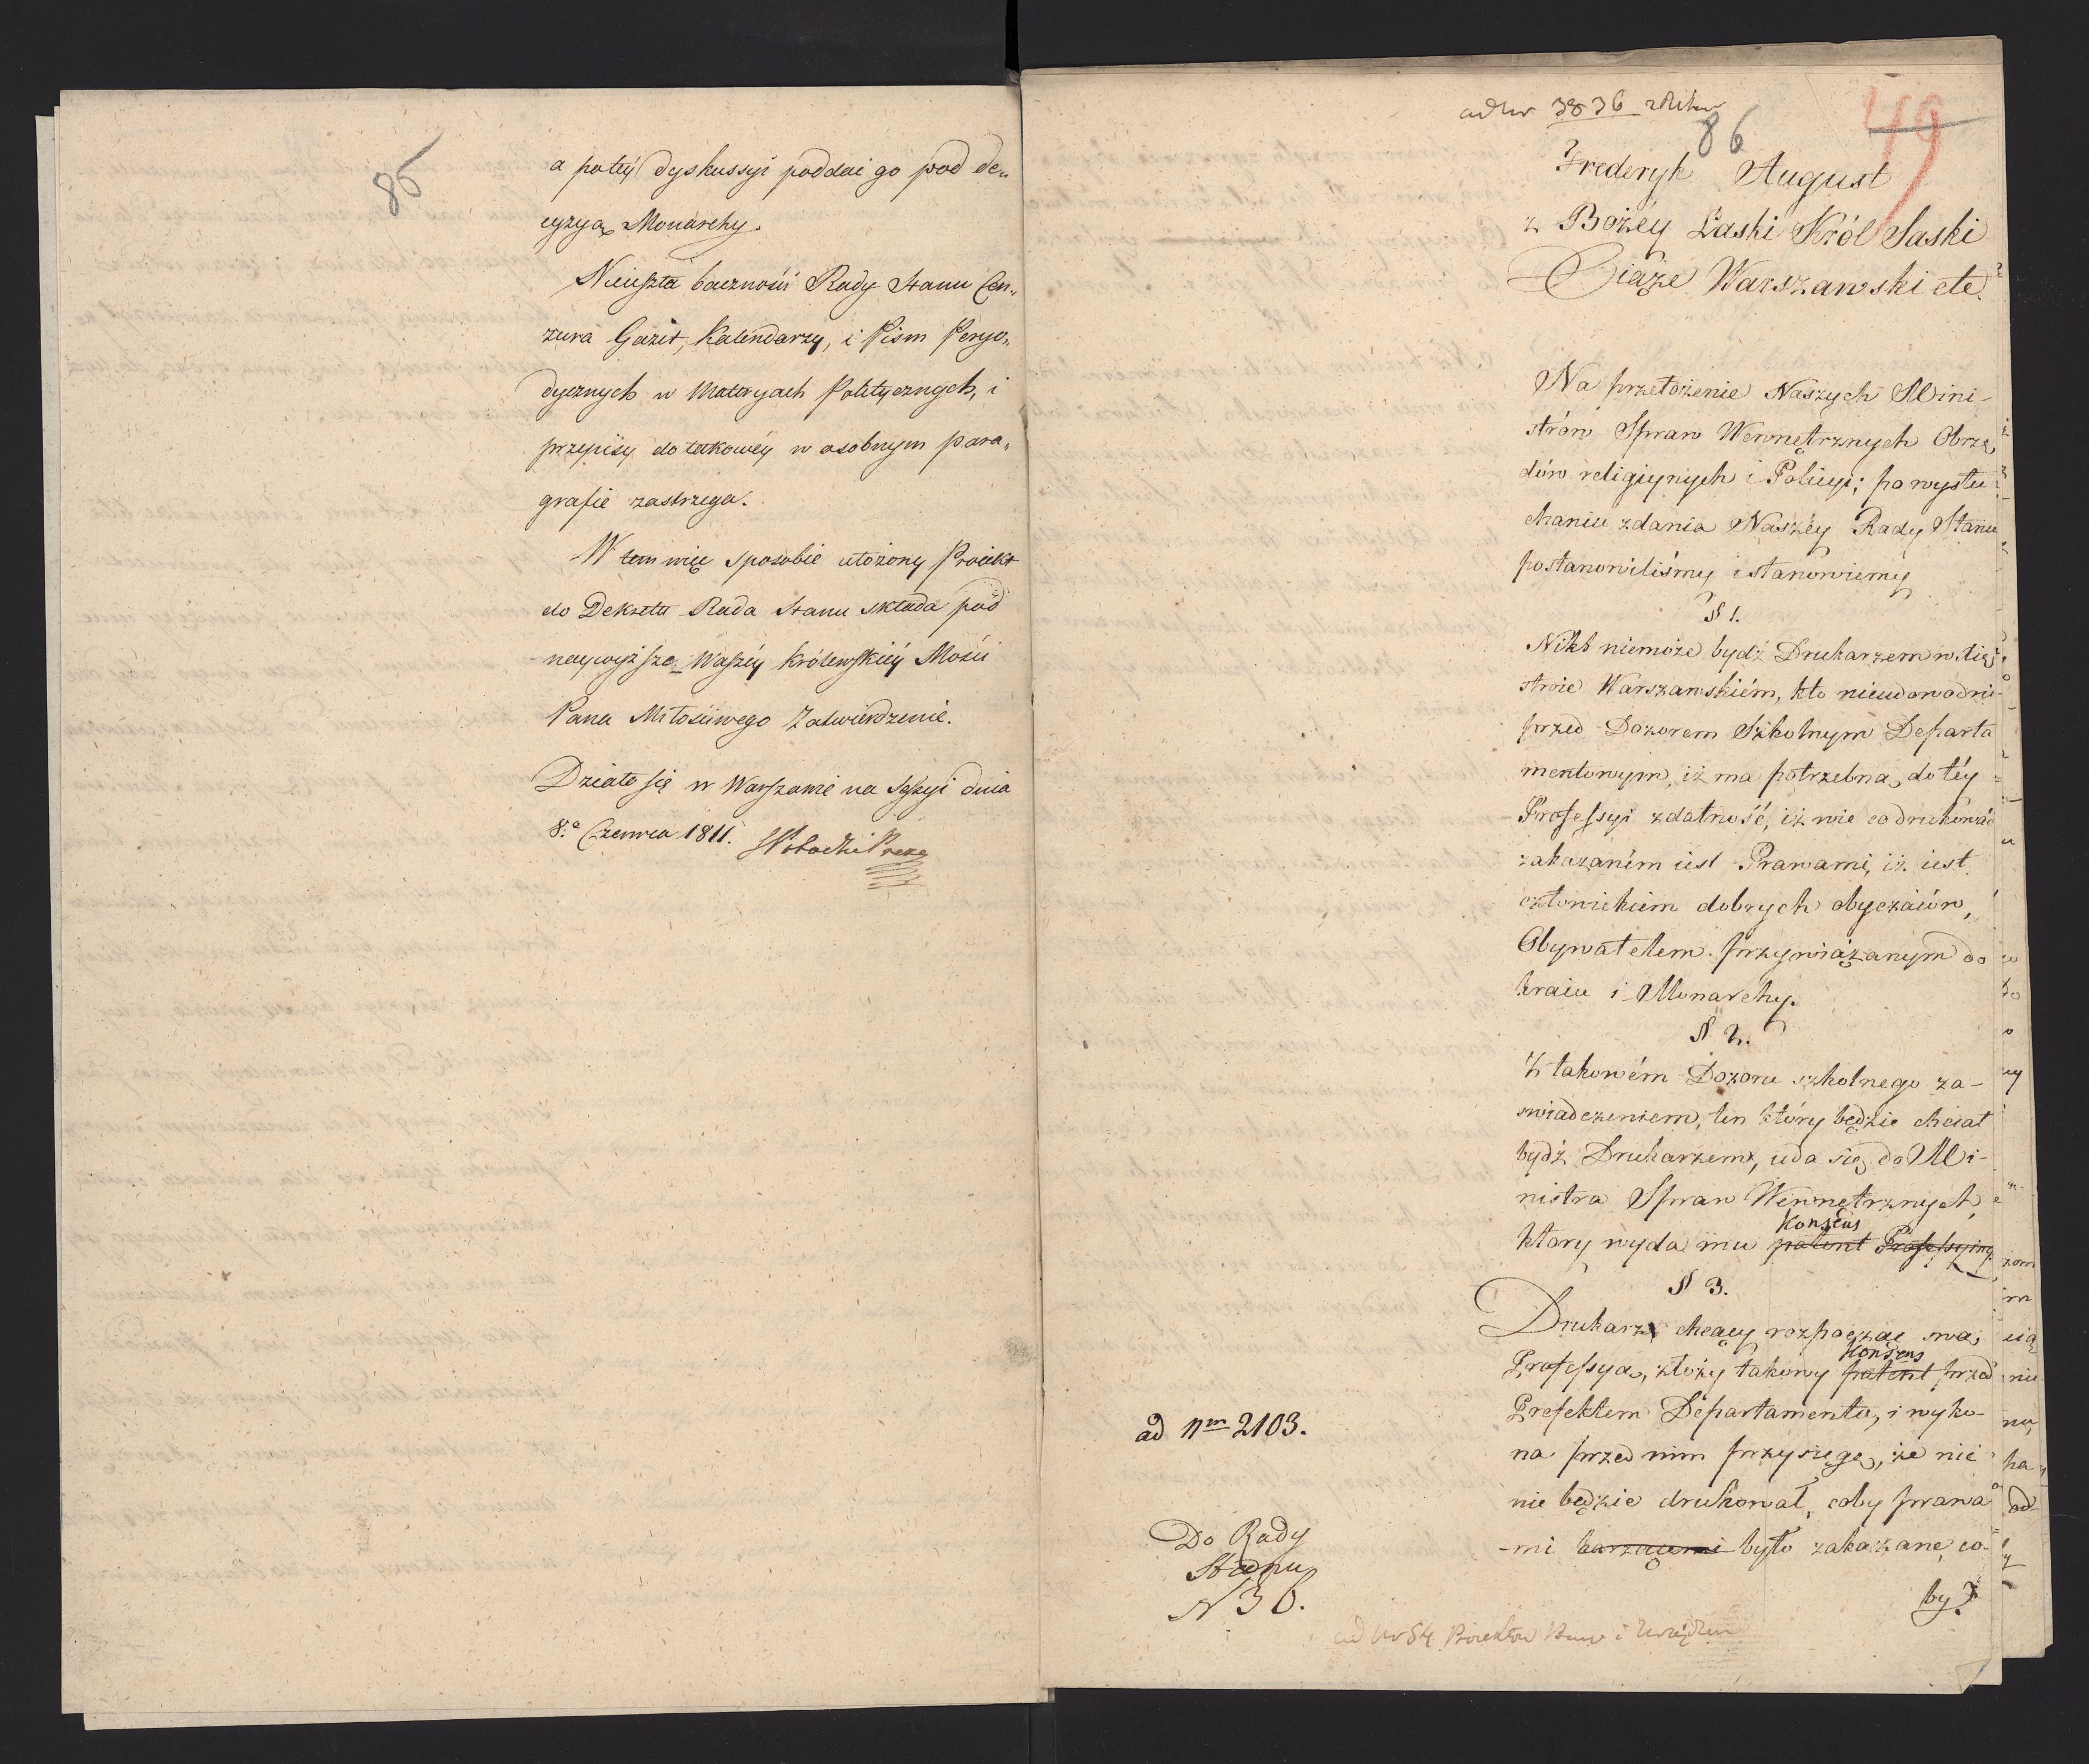 85
a po téy dyskussyi poddai go pod de„
cyzyą Monarchy.
Nieuszła baczność Rady Stanu Cen„
zura Gazet, Kalendarzy, i Pism Peryo„
dycznych w Materyach Politycznych, i
przepisy do takowéy w osobnym para„
grafie zastrzega.
W tem więc sposobie ułożony Proiekt
do Dekretu Rada Stanu składa pod
naywyższe Waszéy Królewskiéy Mości
Pana Miłościwego Zatwierdzenie.
Działo się w Warszawie na Sessyi dnia
8.º Czerwca 1811. S Potocki Prezes
ad Nr 3836
86
49
Frederyk August
z Bożéy Łaski Król Saski
Xiąże Warszawski etc.
Na przełożenie Naszych Mini-
strów Spraw Wewnętrznych Obrzą
dów religiynych i Policyi; po wysłu
chaniu zdania Naszéy Rady Stanu
postanowiliśmy i stanowiemy
§ 1.
Nikt niemoże bydź Drukarzem w Xię
stwie Warszawskiém, kto nieudowodni
przed Dozorem Szkolnym Departa
mentowym, iż ma potrzebną do téy
Professyi zdatność, iż wie co drukować
zakazaném iest Prawami, iż iest
człowiekiem dobrych obyczaiów,
Obywatelem przywiązanym do
kraiu i Monarchy.
§ 2.
Z takowém Dozoru szkolnego za-
swiadczeniem, ten który będzie chciał
bydź Drukarzem, uda się do Mi-
nistra Spraw Wewnętrznych,
Konsens
który wyda mu patent Professyiny
§ 3.
Drukarz chcący rozpocząć swą
Konsens
Professyą, złoży takowy patent przed
Prefektem Departamentu, i wyko-
na przed nim przysięgę, że nic
nie będzie drukował, coby prawa
-mi karzącemi było zakazane, co-
by
ad Nrm 2103.
Do Rady
Stanu
N 36.
ad Nr 54